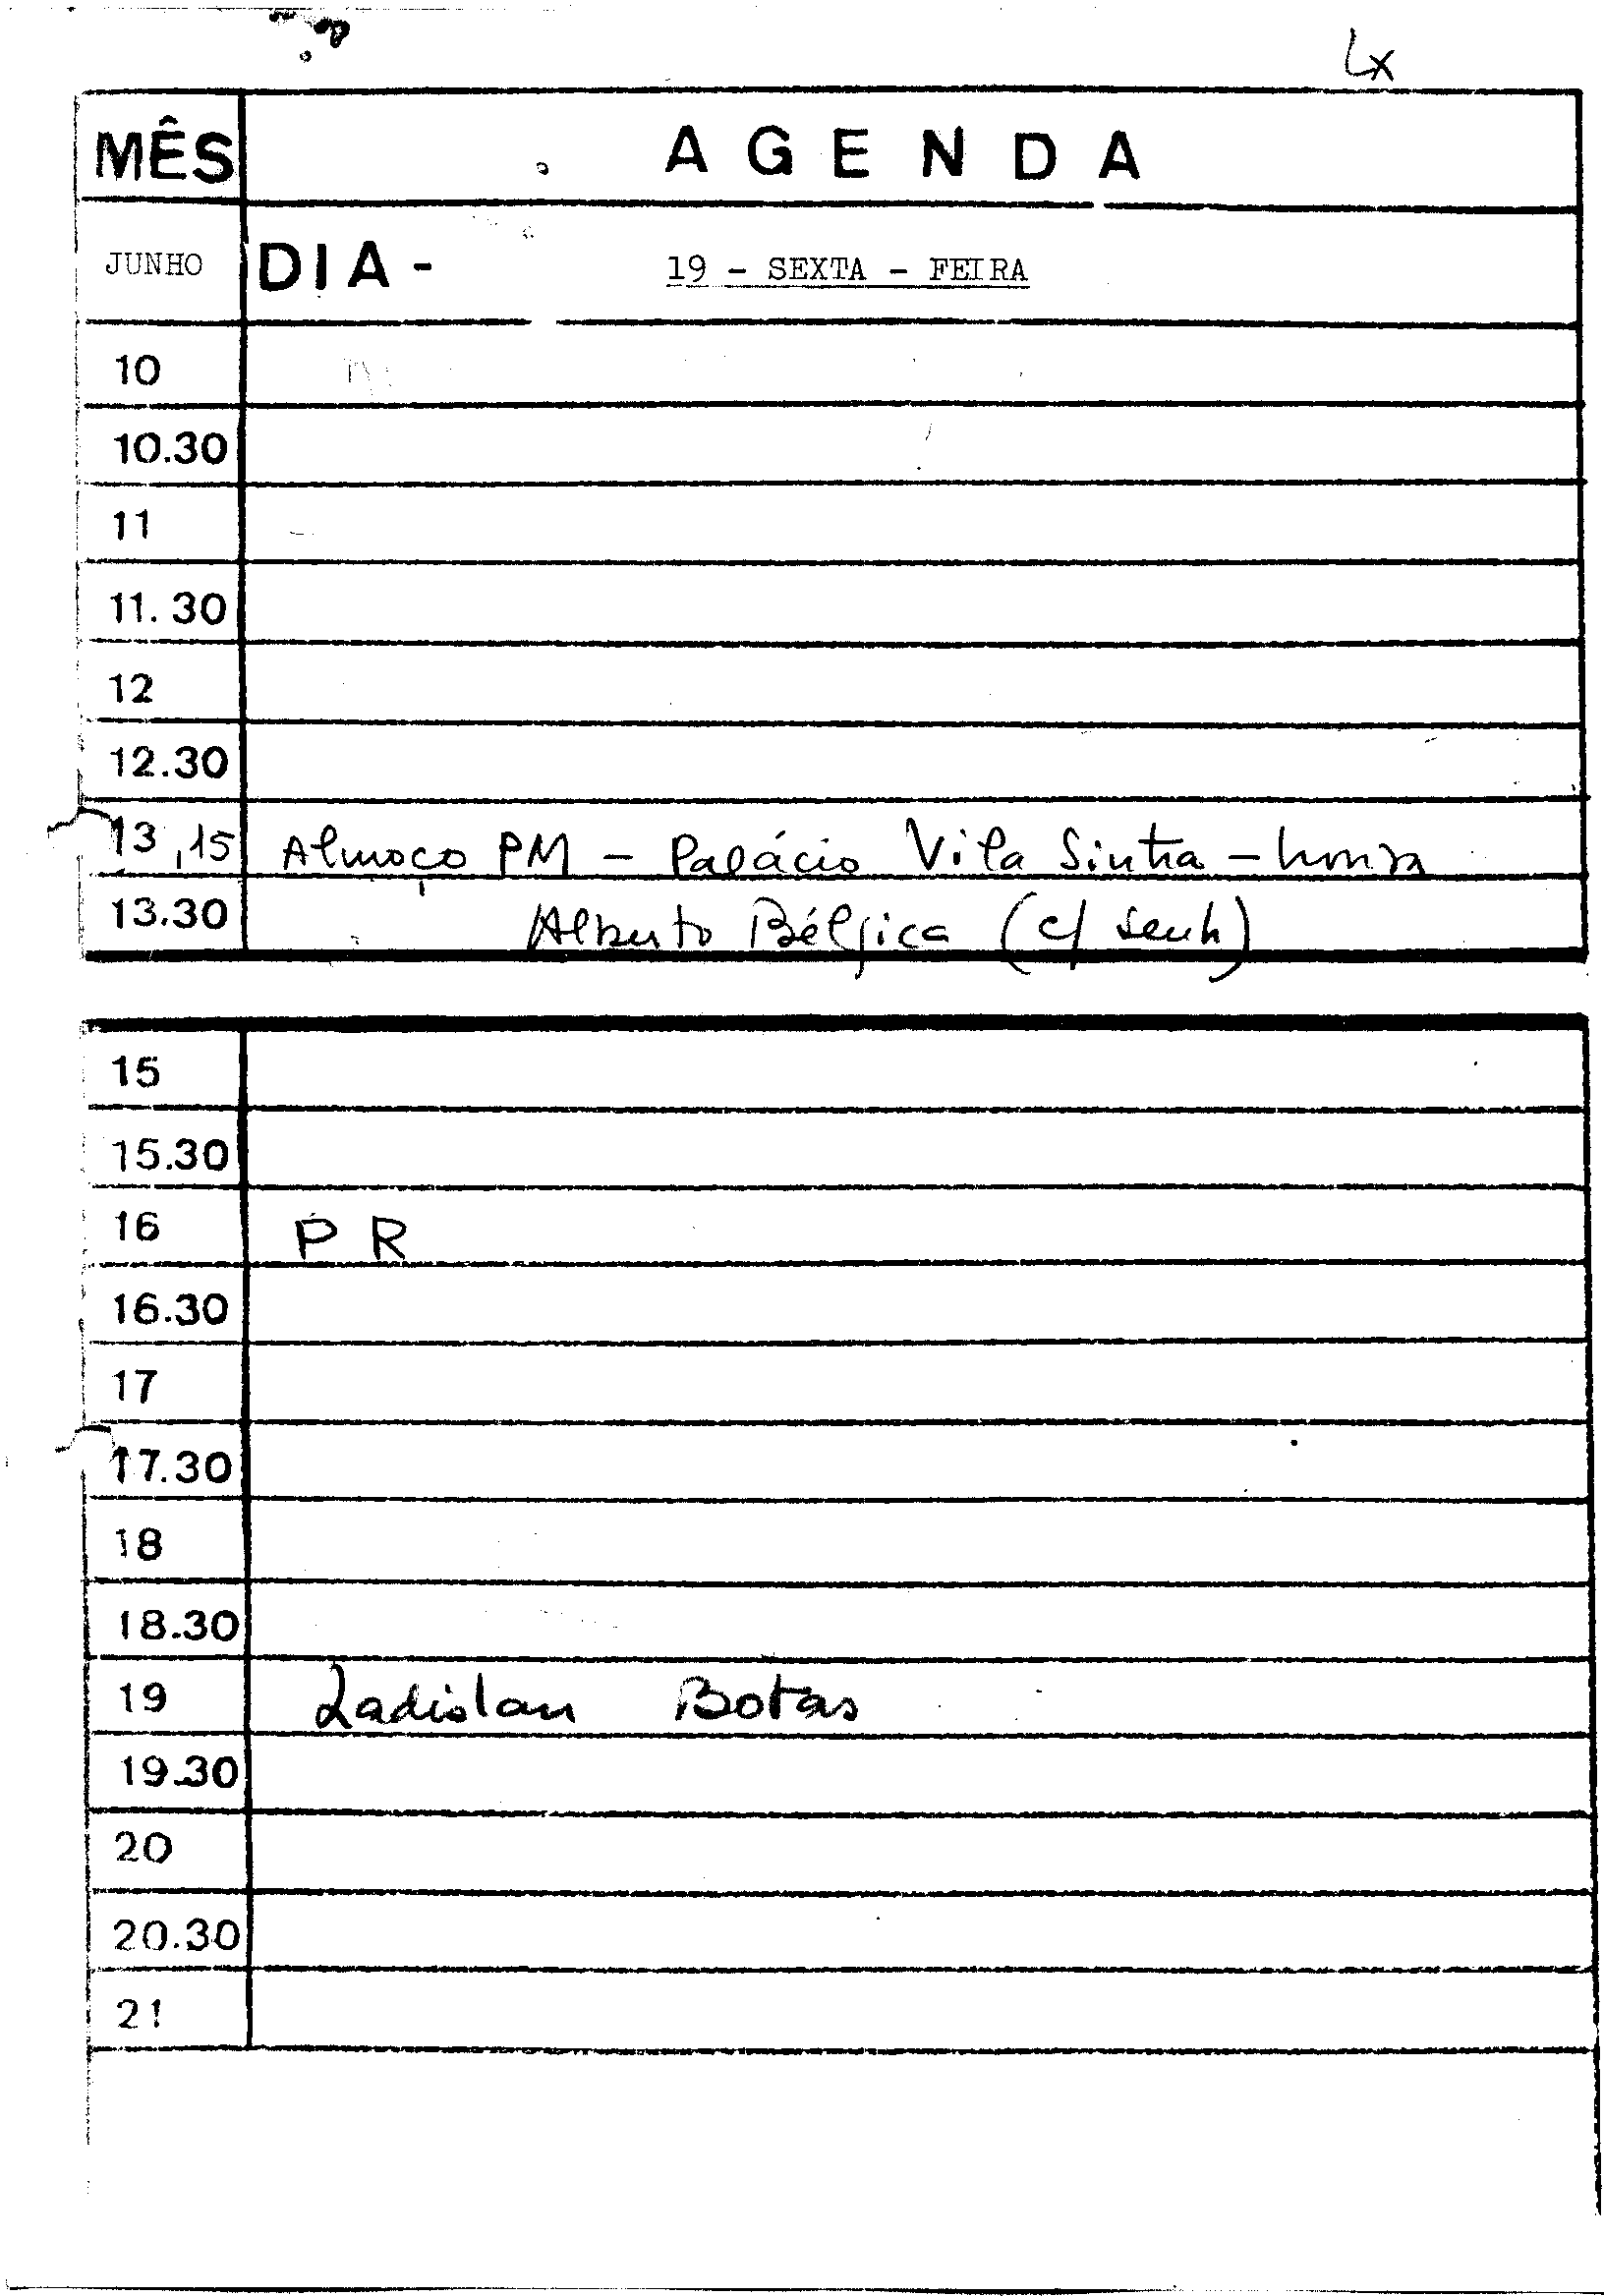 Lx
MÊS AGENDA
JUNHO DIA - 19 - SEXTA - FEIRA
10
10.30
11
11.30
12
12.30
13,15 Almoço PM - Palácio Vila Sintra -
13.30 Alberto Bélgica (c/ senh)
15
15.30
16 PR
16.30
17
17.30
18
18.30
19 Ladislau Botas
19.30
20
20.30
21